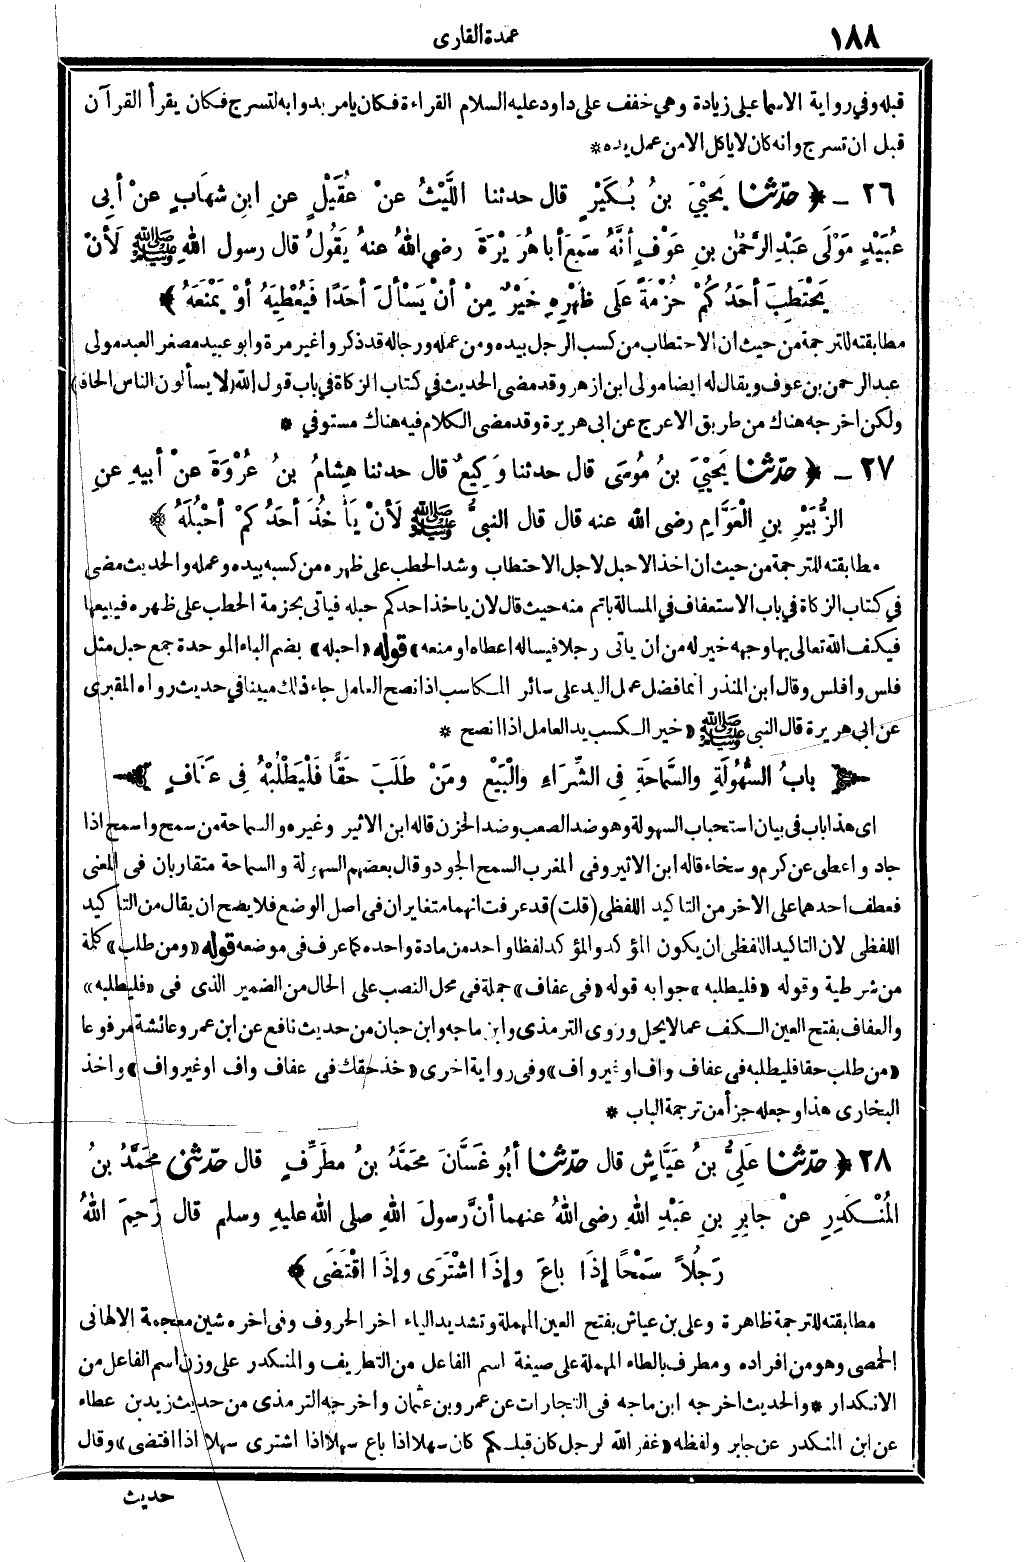 ١٨٨
عمدة القارى
قبله وفي رواية الاسماعيلى زيادة وهي خفف على داود عليه السلام القراءة فكان يامر بدوابه لتسرج فكان يقرأ القرآن
قبل ان تسرج وانه كان لا ياكل الا من عمل يده *
٢٦ – ﴿ حَدَّثَنَا يَحْيَىَ بنُ بُكَيْرٍ قال حدثنا اللَّيْثُ عنْ عُقَيْلٍ عنِ ابنِ شِهَابٍ عنْ أبِى
عُبَيْدٍ مَوْلَى عَبْدِ الرَّحْمٰنِ بنِ عَوْفٍ أنَّهُ سَمِعَ أبا هُرَيْرَةَ رضى اللهُ عنهُ يَقُولُ قال رسول اللهِ ﷺ لَأنْ
يَحْتَطِبَ أحَدُ كُمْ حُزْمَةً عَلَى ظَهْرِهِ خَيْرٌ مِنْ أنْ يَسْألَ أحَدًا فَيُعْطِيَهُ أوْ يَمْنَعَهُ ﴾
مطابقته للترجمة من حيث ان الاحتطاب من كسب الرجل بيده ومن عمله ورجاله قد ذكروا غير مرة وابو عبيد مصغر العبد مولى
عبد الرحمن بن عوف ويقال له ايضا مولى ابن ازهر وقد مضى الحديث في كتاب الزكاة في باب قول الله (لا يسألون الناس الحافا)
ولكن اخرجه هناك من طريق الاعرج عن ابى هريرة وقد مضى الكلام فيه هناك مستوفي *
٢٧ – ﴿ حَدَّثَنَا يَحْيَىَ بنُ مُوسَى قال حدثنا وَكِيعٌ قال حدثنا هِشامُ بنُ عُرْوَةَ عنْ أبيهِ عنِ
الزُّبَيْرِ بنِ الْعَوَّامِ رضى الله عنه قال قال النبىُّ ﷺ لَأنْ يَأْخُذَ أحَدُ كمْ أحْبُلَهُ ﴾
مطابقته للترجمة من حيث ان اخذ الاحبل لاجل الاحتطاب وشد الحطب على ظهره من كسبه بيده وعمله والحديث مضى
في كتاب الزكاة في باب الاستعفاف في المسالة باتم منه حيث قال لان ياخذ احدكم حبله فياتى بحزمة الحطب على ظهره فيبيعها
فيكف الله تعالى بها وجهه خير له من ان ياتى رجلا فيساله اعطاه او منعه» قوله «احبله» بضم الباء الموحدة جمع حبل مثل
فلس وافلس وقال ابن المنذر انما فضل عمل اليد على سائر المكاسب اذا نصح العامل جاء ذلك مبينا في حديث رواه المقبرى
عن ابى هريرة قال النبى ﷺ «خير الكسب يد العامل اذا انصح *
بابُ السُّهُولَةِ والسَّماحَةِ فِى الشِّرَاءِ والْبَيْعِ ومَنْ طَلَبَ حَقًّا فَلْيَطْلُبْهُ فِى عَفَافٍ
اى هذا باب فى بيان استحباب السهولة وهو ضد الصعب وضد الحزن قاله ابن الاثير وغيره والسماحة من سمح واسمح اذا
جاد واعطى عن كرم وسخاء قاله ابن الاثير وفى المغرب السمح الجود وقال بعضهم السهولة والسماحة متقاربان فى المعنى
فعطف احدهما على الاخر من التاكيد اللفظى (قلت) قد عرفت انهما متغايران فى اصل الوضع فلا يصح ان يقال من التاكيد
اللفظى لان التاكيد اللفظى ان يكون المؤكد والمؤكد لفظا واحد من مادة واحده كما عرف فى موضعه قوله «ومن طلب» كلمة
من شرطية وقوله «فليطلبه» جوابه قوله «فى عفاف» جملة فى محل النصب على الحال من الضمير الذى فى «فليطلبه»
والعفاف بفتح العين الكف عما لا يحل وروى الترمذى وابن ماجه وابن حبان من حديث نافع عن ابن عمر وعائشة مرفوعا
«من طلب حقا فليطلبه فى عفاف واف او غير واف» وفى رواية اخرى «خذ حقك فى عفاف واف او غير واف» واخذ
البخارى هذا وجعله جزأ من ترجمة الباب *
٢٨ ﴿ حَدَّثَنَا عَلِىُّ بنُ عَيَّاشٍ قال حَدَّثَنَا أبُو غَسَّانَ مُحَمَّدُ بنُ مطَرِّفٍ قال حَدَّثَنِى مُحَمَّدُ بنُ
المُنْكَدِرِ عنْ جابِرِ بنِ عَبْدِ اللهِ رضى اللهُ عنهما أنَّ رسولَ اللهِ صلى الله عليهِ وسلم قال رَحِمَ اللهُ
رَجُلاً سَمْحًا إذَا باعَ وإذَا اشْتَرَى وإذَا اقْتَضَى ﴾
مطابقته للترجمة ظاهرة وعلى بن عياش بفتح العين المهملة وتشديد الياء اخر الحروف وفى اخره شين معجمة الالهانى
الحمصى وهو من افراده ومطرف بالطاء المهملة على صيغة اسم الفاعل من التطريف والمنكدر على وزن اسم الفاعل من
الانكدار * والحديث اخرجه ابن ماجه فى التجارات عن عمرو بن عثمان واخرجه الترمذى من حديث زيد بن عطاء
عن ابن المنكدر عن جابر ولفظه «غفر الله لرجل كان قبلكم كان سهلا اذا باع سهلا اذا اشترى سهلا اذا اقتضى» وقال
حديث